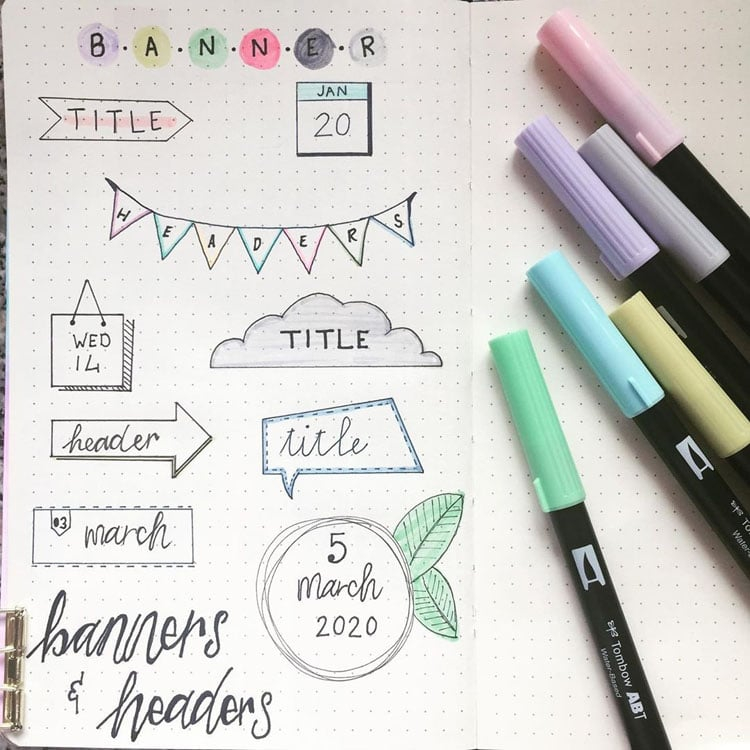 B·A·N·N·E·R
TITLE
JAN
20
HEADERS
WED
14
TITLE
header
title
03
march
5
march
2020
banners
& headers
Tombow ABT
Water-Based
Tombow
Water-